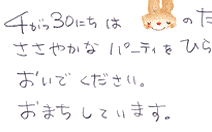 4がつ30にちは のた
ささやかな パーティを ひら
おいでください。
おまちしています。